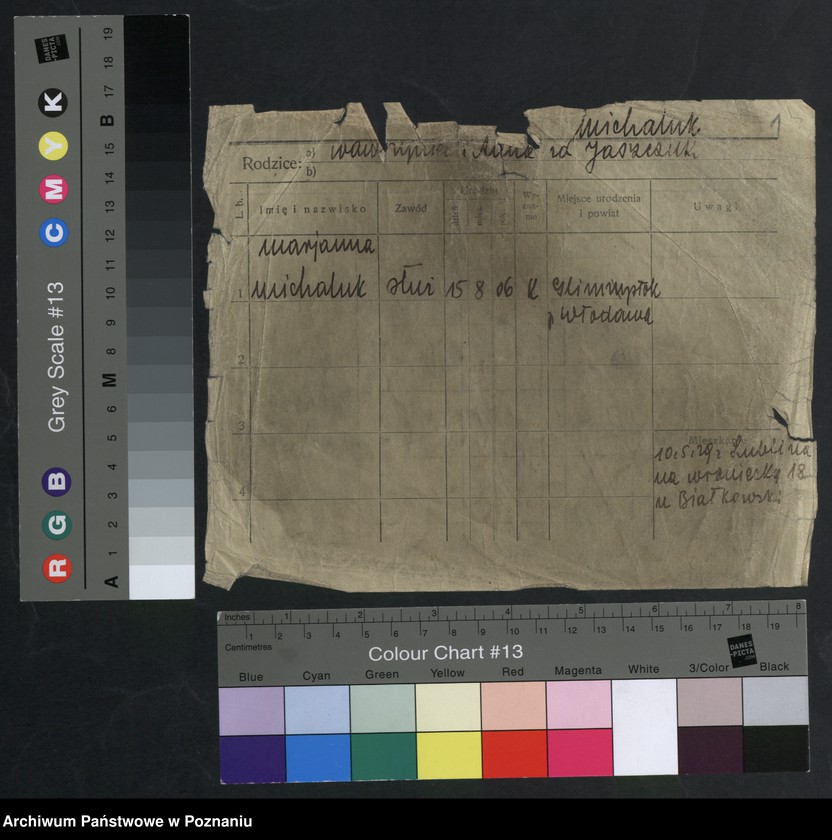 Michaluk 1
Rodzice: a) Wawrzyniec i Anna zd Jaszczuk
b)
L. b. Imię i nazwisko Zawód Urodzin dzień mies. rok Wy-zna-nie Miejsce urodzenia i powiat Uwagi
Marjanna
1 Michaluk służ 15 8 06 K
p Włodawa
2
3
Mieszkanie
10.5.29 z Lublina
na 18
u Białkowski
4
DANES-PICTA.COM
A 1 2 3 4 5 6 M 8 9 10 11 12 13 14 15 B 17 18 19
R G B Grey Scale #13 C M Y K
Inches 1 2 3 4 5 6 7 8
Centimetres 1 2 3 4 5 6 7 8 9 10 11 12 13 14 15 16 17 18 19
Colour Chart #13
DANES-PICTA.COM
Blue Cyan Green Yellow Red Magenta White 3/Color Black
Archiwum Państwowe w Poznaniu